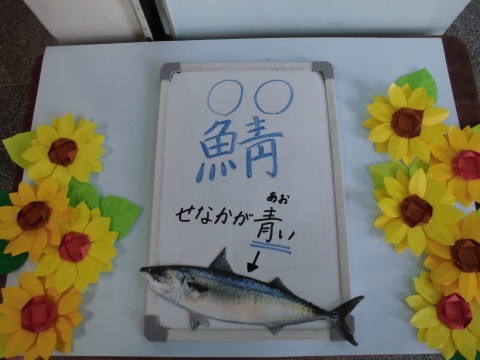 ○○
鯖
せなかが青い
あお